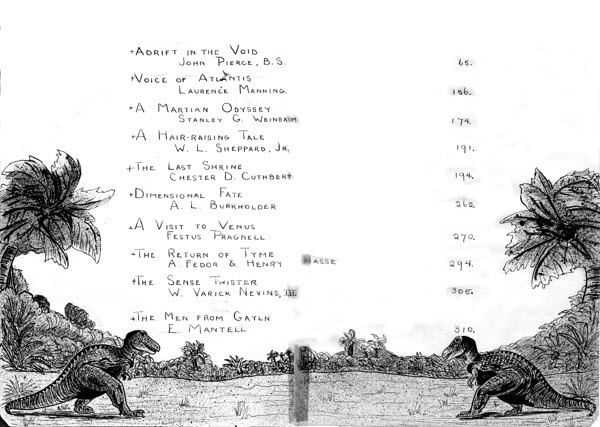 +ADRIFT IN THE VOID
JOHN PIERCE, B.S. 65.
+VOICE OF ATLANTIS
LAURENCE MANNING. 156.
+A MARTIAN ODYSSEY
STANLEY G. WEINBAUM 174.
+A HAIR-RAISING TALE
W. L. SHEPPARD, JR. 191.
+THE LAST SHRINE
CHESTER D. CUTHBERT 194.
+DIMENSIONAL FATE
A. L. BURKHOLDER 262.
+A VISIT TO VENUS
FESTUS PRAGNELL 270.
+THE RETURN OF TYME
A. FEDOR & HENRY HASSE 294.
+THE SENSE TWISTER
W. VARICK NEVINS, III 305.
+THE MEN FROM GAYLN
E. MANTELL 310.